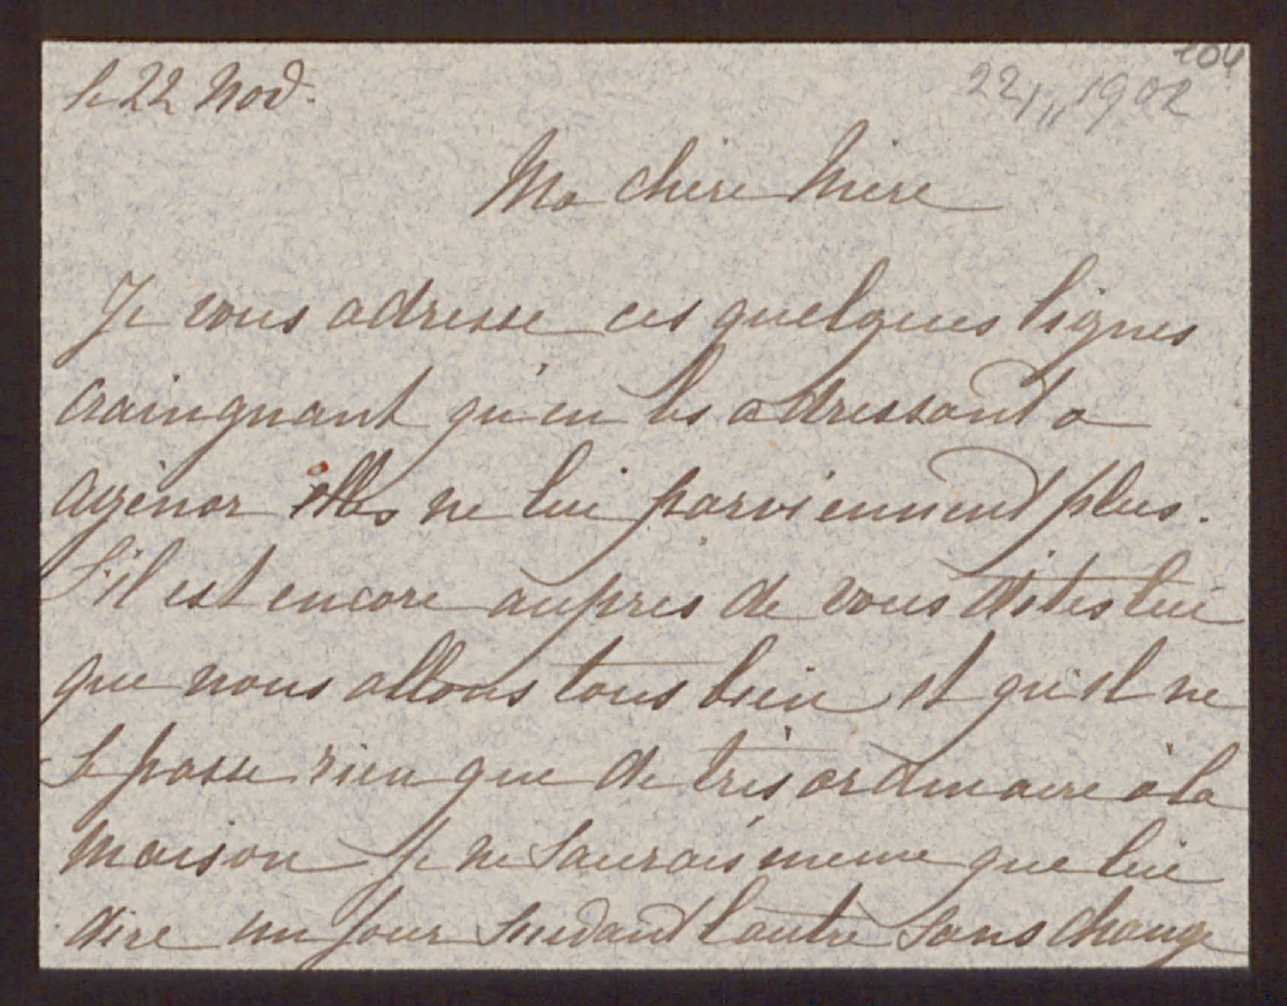 le 22 Nov.
104
22/11 1902
Ma chère Mère
Je vous adresse ces quelques lignes
craingnant qu'en les adressant a
agénor elles ne lui parviennent plus.
S'il est encore auprès de vous dites lui
que nous allons tous bien et qu'il ne
se passe rien que de très ordinaire à la
maison Je ne saurais meme que lui
dire un jour suivant l'autre sans change